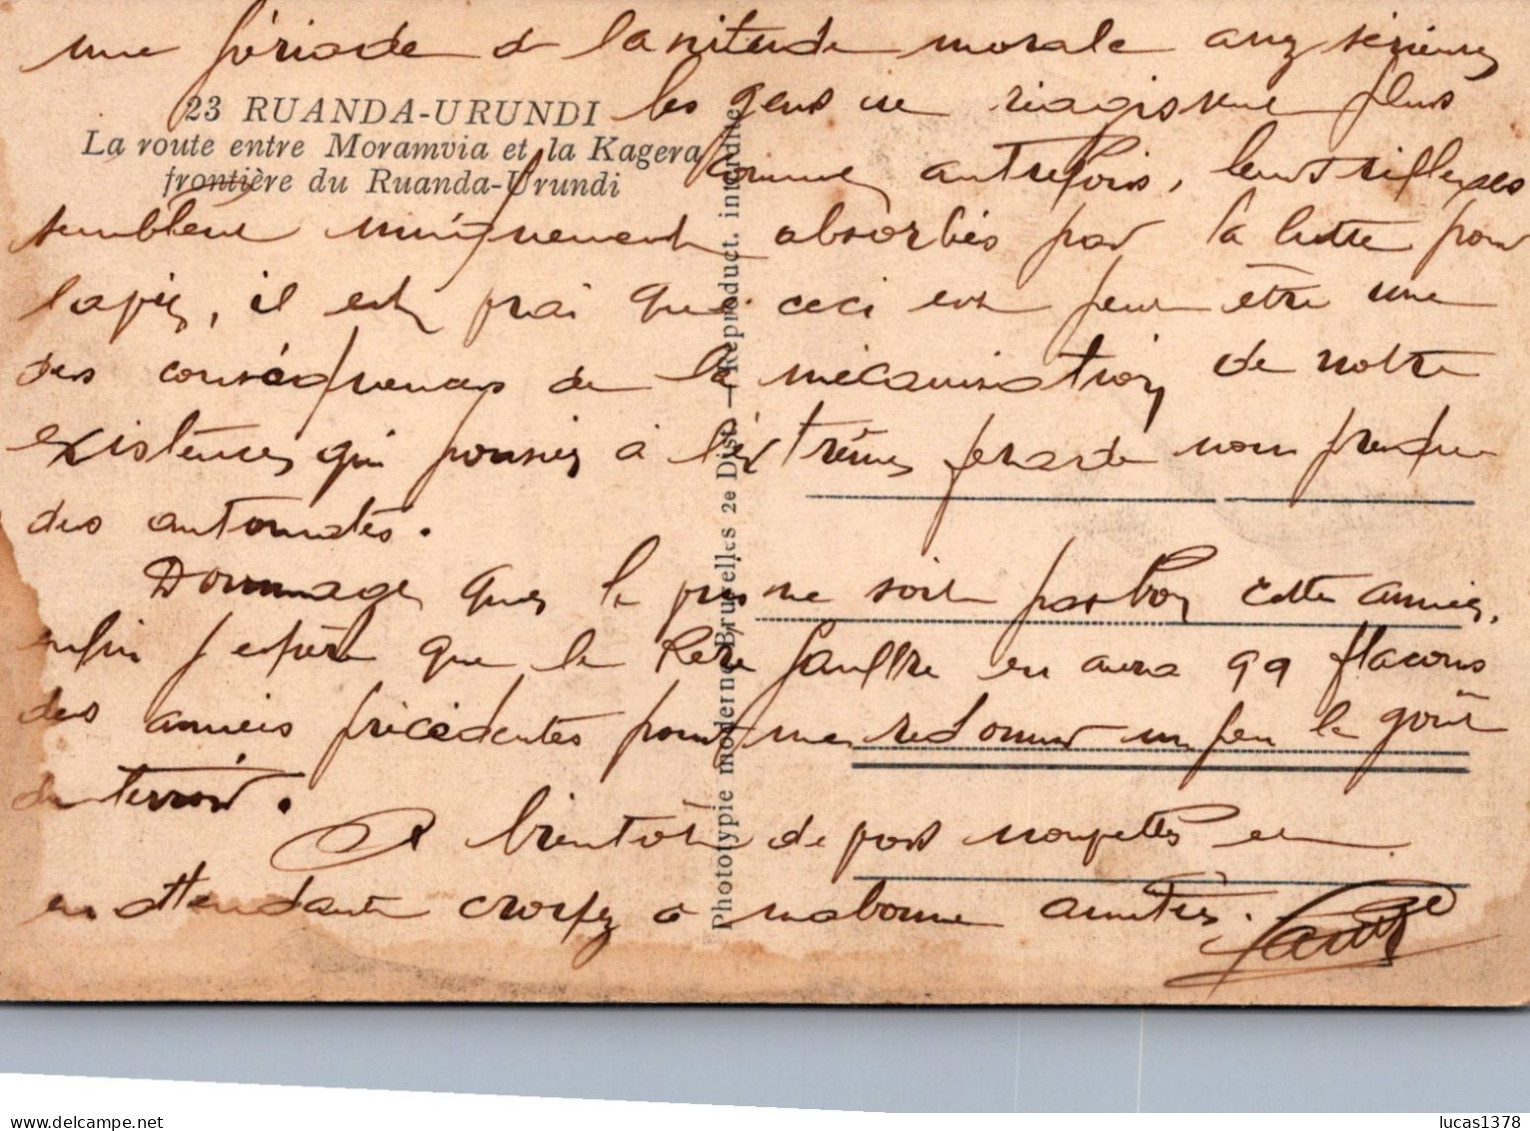 une période de lassitude morale
23 RUANDA-URUNDI
les gens ne réagissent plus
La route entre Moramvia et la Kagera
comme autrefois, leurs réflexes
frontière du Ruanda-Urundi
semblent uniquement absorbés par la lutte pour
la vie, il est vrai que ceci est peut être une
des conséquences de la mécanisation de notre
existence, qui poussée à l'extrême
des automates.
Dommage que le ne soit pas bon cette année,
enfin j'espère que le Père en aura 99 flacons
des années précédentes pour me redonner un peu le goût
du terroir.
A bientôt de vos nouvelles en
en attendant croyez à ma bonne amitié.
Phototypie moderne Bruxelles 2e Dist. — Reproduct. interdite
delcampe.net
lucas1378